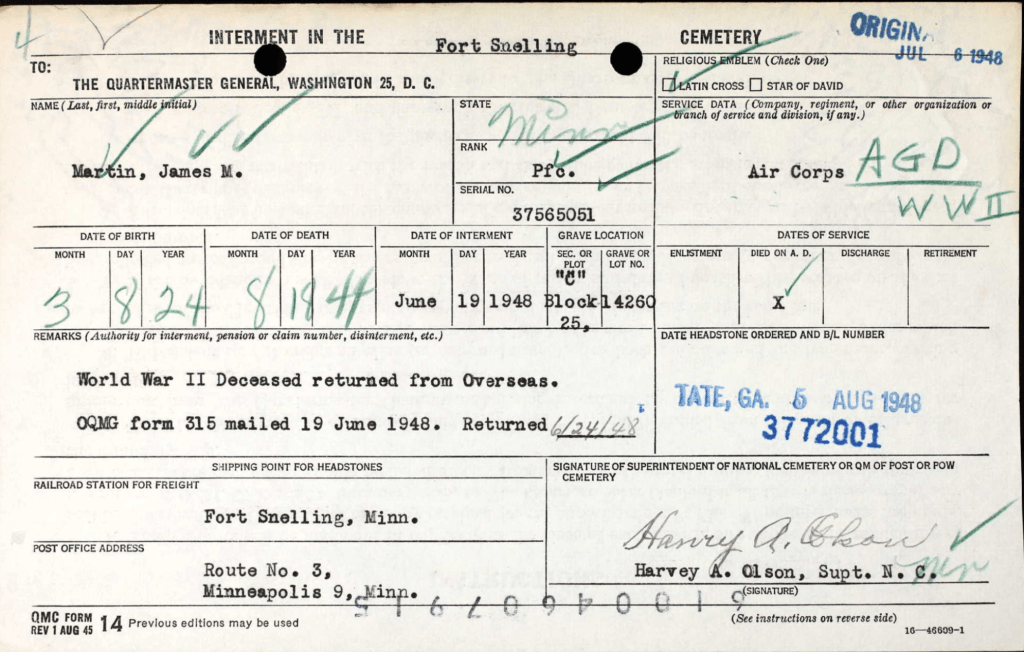 INTERMENT IN THE Fort Snelling CEMETERY
ORIGINA
JUL 6 1948
TO:
THE QUARTERMASTER GENERAL, WASHINGTON 25, D. C.
RELIGIOUS EMBLEM (Check One)
LATIN CROSS STAR OF DAVID
NAME (Last, first, middle initial)
Martin, James M.
STATE
Minn
RANK
Pfc.
SERIAL NO.
37565051
SERVICE DATA (Company, regiment, or other organization or
branch of service and division, if any.)
Air Corps AGD
WWII
DATE OF BIRTH DATE OF DEATH DATE OF INTERMENT GRAVE LOCATION DATES OF SERVICE
MONTH DAY YEAR MONTH DAY YEAR MONTH DAY YEAR SEC. OR PLOT GRAVE OR LOT NO. ENLISTMENT DIED ON A. D. DISCHARGE RETIREMENT
3 8 24 8 18 44 June 19 1948 "C" Block 25, 14260 X
REMARKS (Authority for interment, pension or claim number, disinterment, etc.)
World War II Deceased returned from Overseas.
OQMG form 315 mailed 19 June 1948. Returned 6/24/48
DATE HEADSTONE ORDERED AND B/L NUMBER
TATE, GA. 5 AUG 1948
3772001
SHIPPING POINT FOR HEADSTONES
RAILROAD STATION FOR FREIGHT
Fort Snelling, Minn.
POST OFFICE ADDRESS
Route No. 3,
Minneapolis 9, Minn.
SIGNATURE OF SUPERINTENDENT OF NATIONAL CEMETERY OR QM OF POST OR POW
CEMETERY
Harvey A. Olson
Harvey A. Olson, Supt. N. C.
(SIGNATURE)
(See instructions on reverse side)
QMC FORM
REV 1 AUG 45 14 Previous editions may be used
16—46609-1